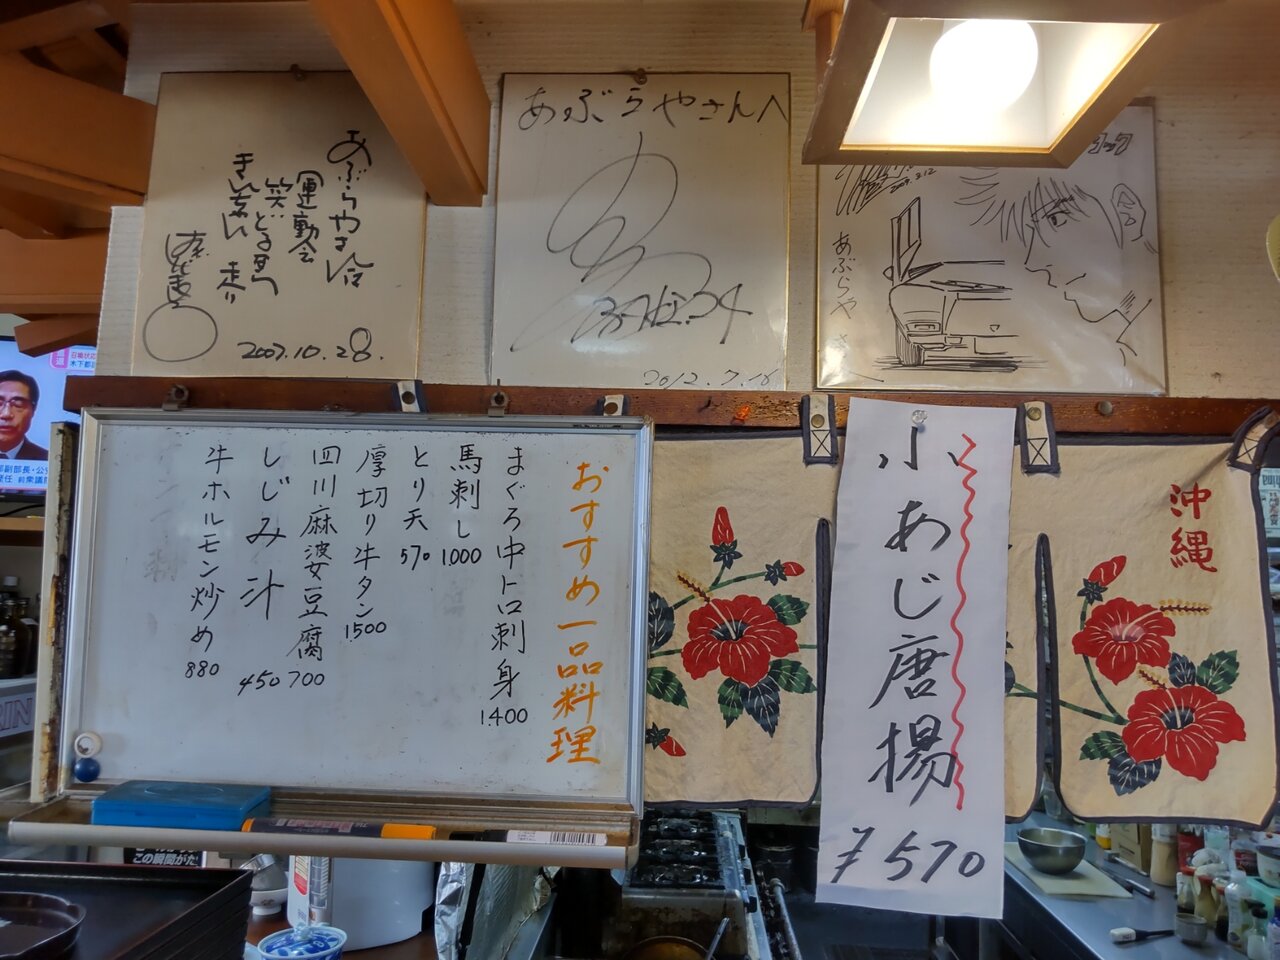 あぶらやさん江
運動会
笑どるまち
走り
2007.10.28.
あぶらやさんへ
2012.7.18
2009.3.12
あぶらや さん
おすすめ一品料理
まぐろ中トロ刺身 1400
馬刺し 1000
とり天 570
厚切り牛タン 1500
四川麻婆豆腐 700
しじみ汁 450
牛ホルモン炒め 880
小あじ唐揚
¥570
沖縄
この瞬間がた